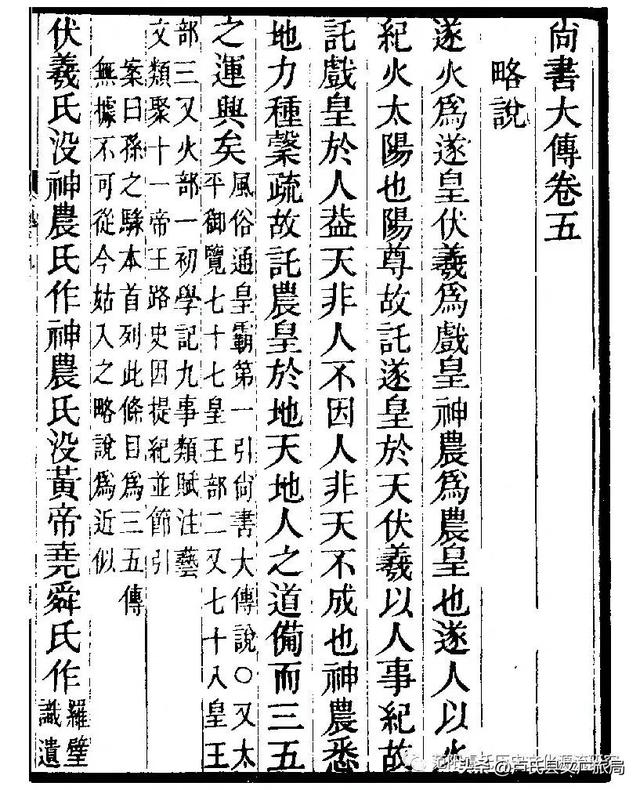 尚書大傳卷五
略說
遂火為遂皇伏羲為戲皇神農為農皇也遂人以火
紀火太陽也陽尊故託遂皇於天伏羲以人事紀故
託戲皇於人葢天非人不因人非天不成也神農悉
地力種榖疏故託農皇於地天地人之道備而三五
之運興矣
風俗通皇霸第一引尚書大傳說○又太
平御覽七十七皇王部二又七十八皇王
部三又火部一初學記九事類賦注藝
文類聚十一帝王路史因提紀並節引
案曰孫之騄本首列此條目為三五傳
無據不可從今姑入之略說為近似
伏羲氏没神農氏作神農氏没黃帝堯舜氏作
羅璧
識遺